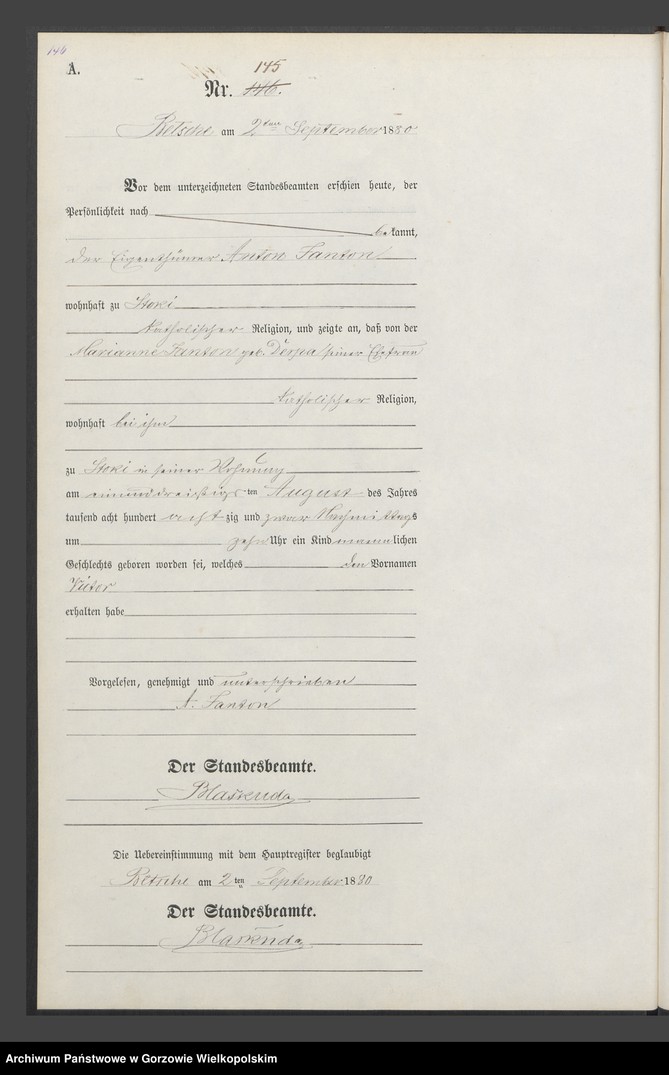 146
A.
145
Nr. 146.
Betsche am 2ten September 1880
Vor dem unterzeichneten Standesbeamten erschien heute, der
Persönlichkeit nach
bekannt,
der Eigenthümer Anton Fanton
wohnhaft zu Stoki
katholischer Religion, und zeigte an, daß von der
Marianne Fanton geb. Derpa seiner Ehefrau
katholischer Religion,
wohnhaft bei ihm
zu Stoki in seiner Wohnung
am einunddreißigsten August des Jahres
tausend acht hundert achtzig und zwar Nachmittags
um zehn Uhr ein Kind männlichen
Geschlechts geboren worden sei, welches den Vornamen
Victor
erhalten habe
Vorgelesen, genehmigt und unterschrieben
A. Fanton
Der Standesbeamte.
Die Uebereinstimmung mit dem Hauptregister beglaubigt
Betsche am 2ten September 1880
Der Standesbeamte.
Archiwum Państwowe w Gorzowie Wielkopolskim